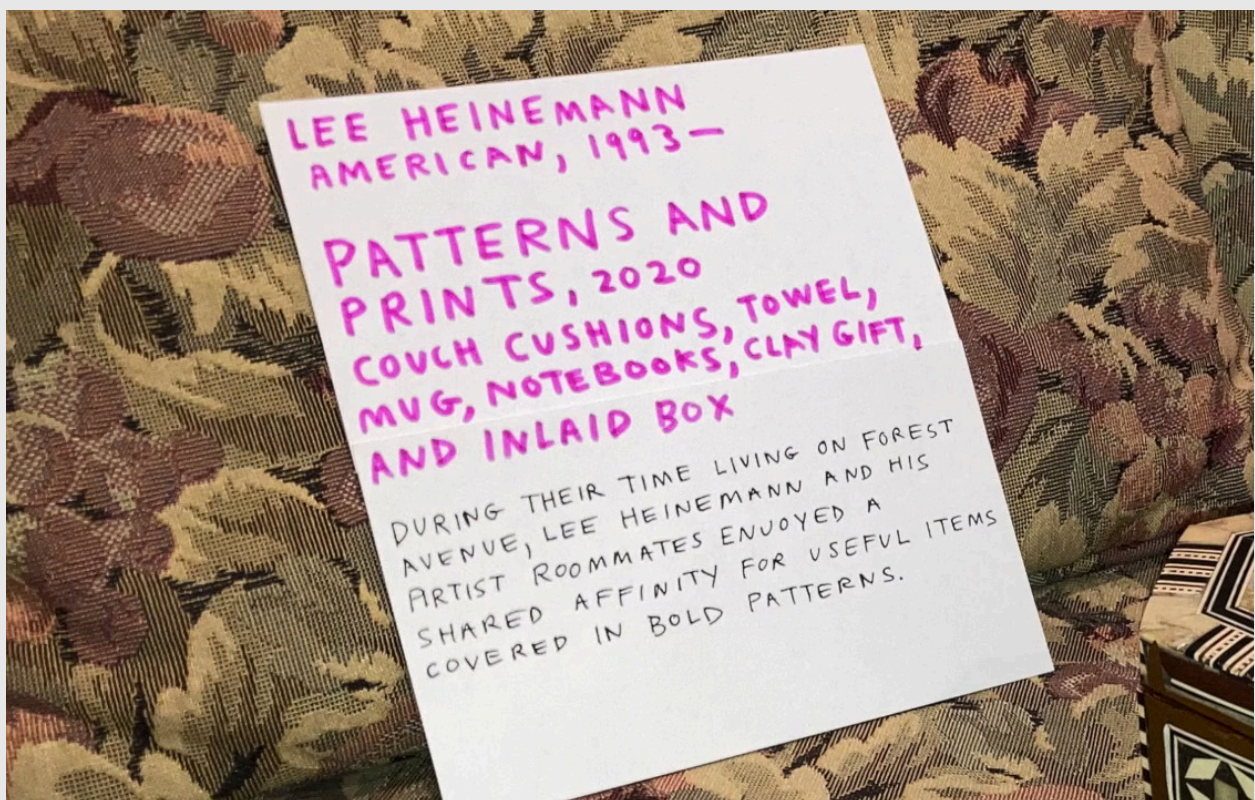 LEE HEINEMANN
AMERICAN, 1993—
PATTERNS AND
PRINTS, 2020
COUCH CUSHIONS, TOWEL,
MUG, NOTEBOOKS, CLAY GIFT,
AND INLAID BOX
DURING THEIR TIME LIVING ON FOREST
AVENUE, LEE HEINEMANN AND HIS
ARTIST ROOMMATES ENJOYED A
SHARED AFFINITY FOR USEFUL ITEMS
COVERED IN BOLD PATTERNS.